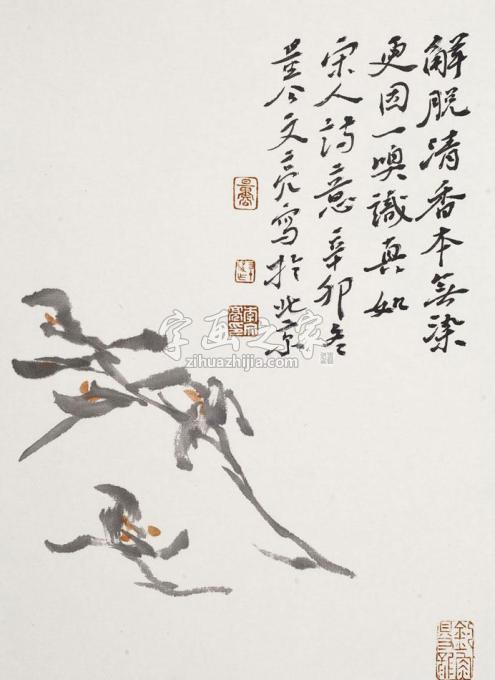 解脱清香本無染
更因一嗅識真如
宋人詩意辛卯冬
文亮寫於北京
字画之家
zihuazhijia.com